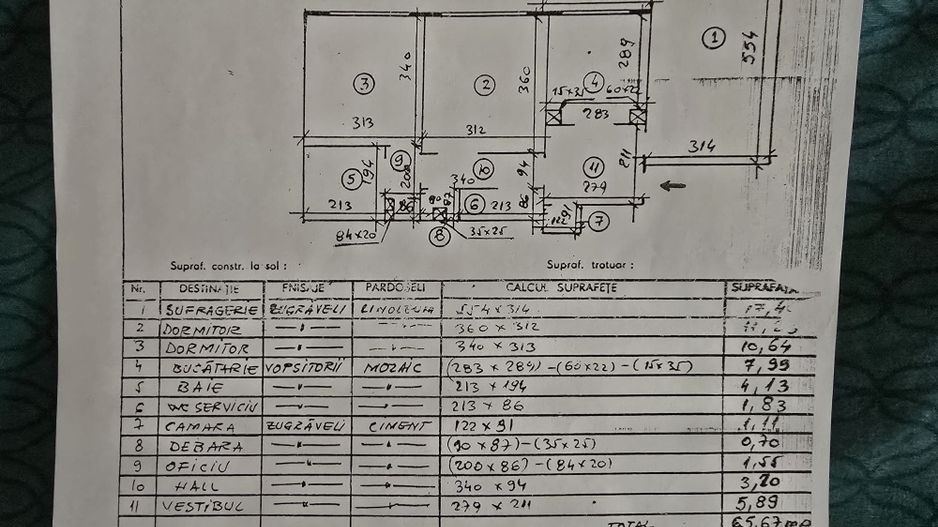 1
554
340
360
289
3
2
4
15x35 60x22
283
313
312
314
211
9
10
11
194
5
200
340
94
279
213
86
90
87
6
213
86
122
91
7
84x20
8
35x25
Supraf. constr. la sol :
Supraf. trotuar :
Nr. DESTINAȚIE FNISAJE PARDOSELI CALCUL SUPRAFEȚE SUPRAFAȚA
1 SUFRAGERIE ZUGRĂVELI LINOLEUM 554 x 314 17,4
2 DORMITOR 360 x 312
3 DORMITOR —"— —"— 340 x 313 10,64
4 BUCĂTARIE VOPSITORII MOZAIC (283 x 289) -(60x22) - (15x35) 7,99
5 BAIE —"— —"— 213 x 194 4,13
6 WC SERVICIU —"— —"— 213 x 86 1,83
7 CAMARA ZUGRĂVELI CIMENT 122 x 91 1,11
8 DEBARA —"— —"— (90 x 87)-(35x25) 0,70
9 OFICIU —"— —"— (200 x 86) -(84x20) 1,55
10 HALL —"— —"— 340 x 94 3,20
11 VESTIBUL —"— —"— 279 x 211 5,89
TOTAL 65,67 mp